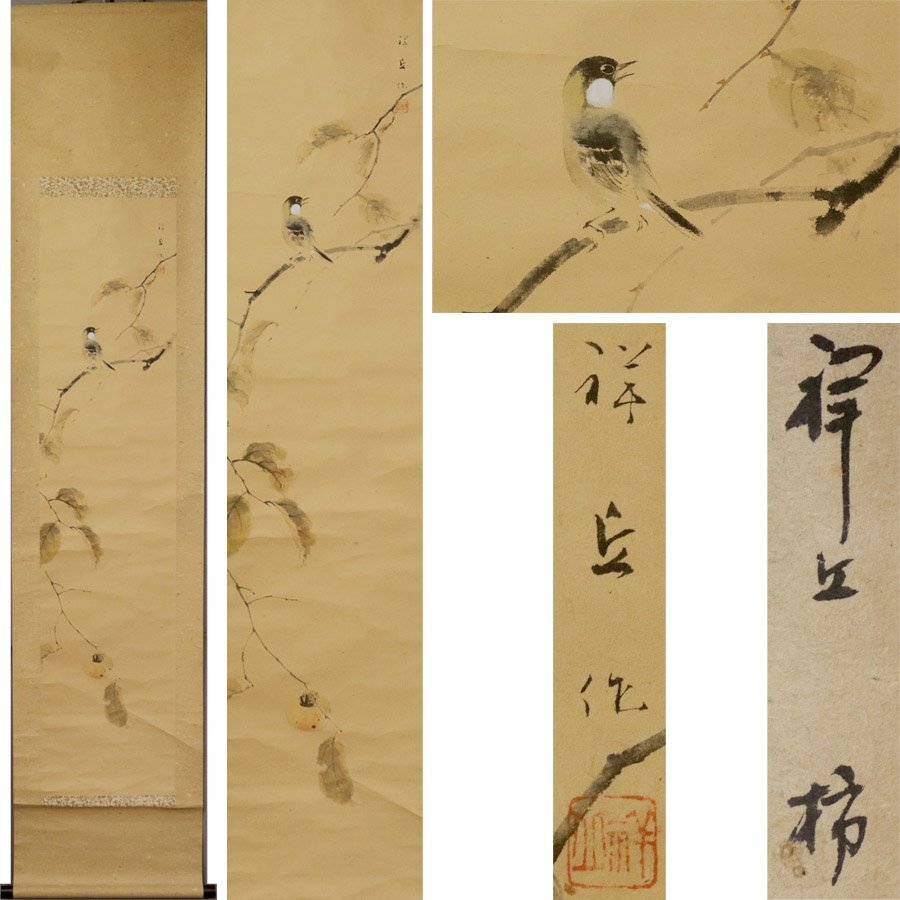 祥丘作
祥丘
柿